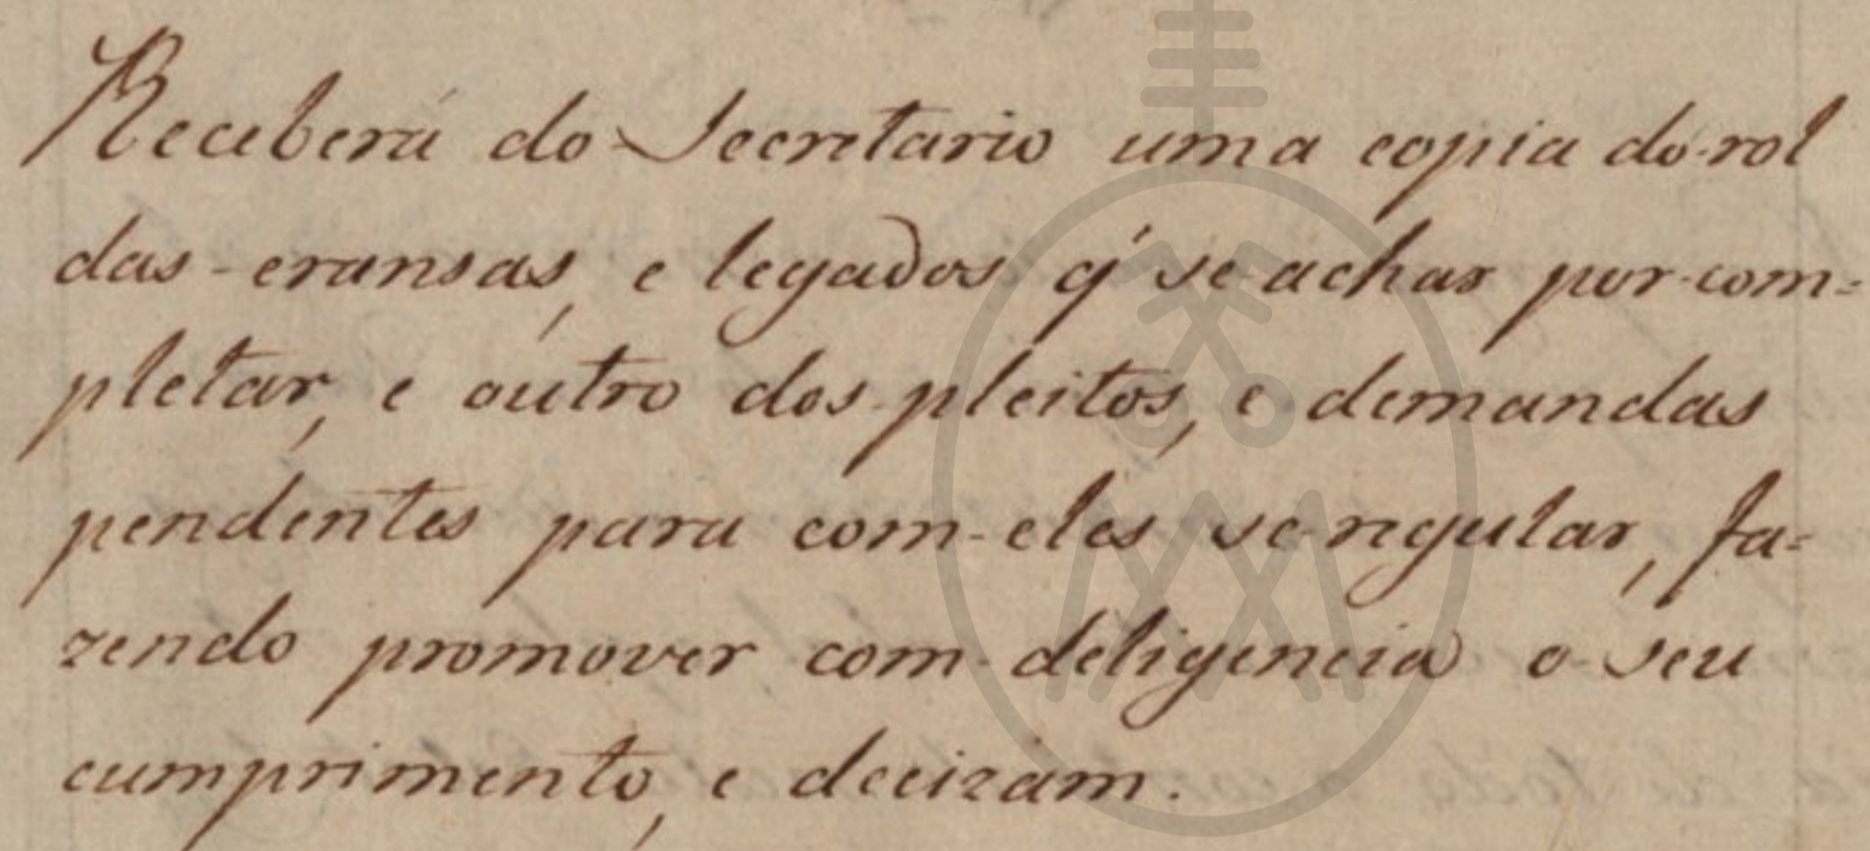 Receberá do Secretario uma copia do rol
das eransas, e legados q' se achar por com=
pletar, e outro dos pleitos, e demandas
pendentes para com eles se regular, fa=
zendo promover com deligencia o seu
cumprimento, e decizam.